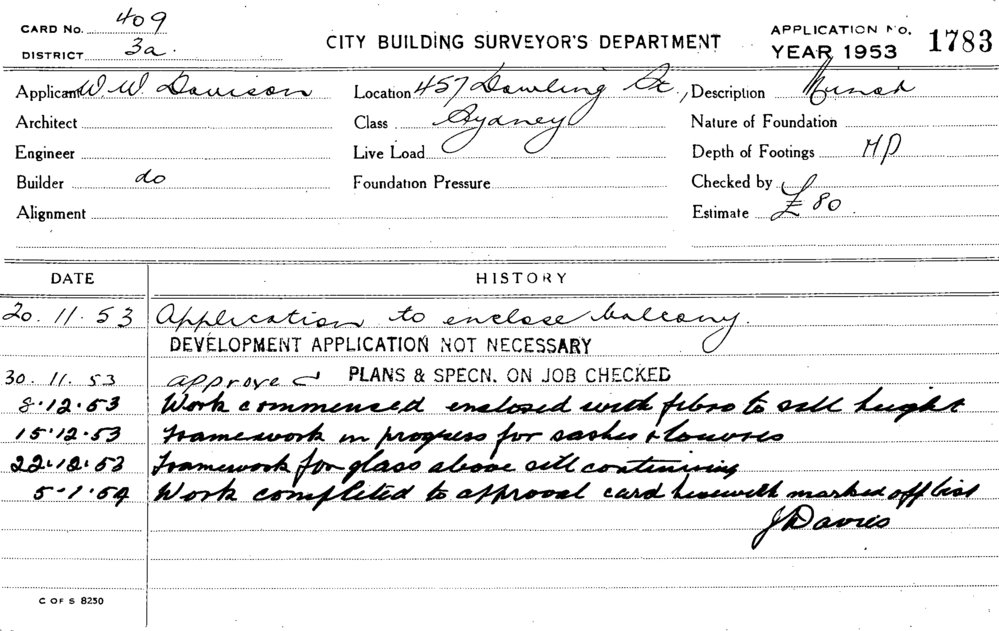 CARD No. 409
DISTRICT 3a.
CITY BUILDING SURVEYOR'S DEPARTMENT
APPLICATION No. 1783
YEAR 1953
Applicant W. W. Davison Location 457 Dowling St., Description
Architect Class Sydney Nature of Foundation
Engineer Live Load Depth of Footings
Builder do Foundation Pressure Checked by
Alignment Estimate £80.
DATE HISTORY
20.11.53 Application to enclose balcony.
DEVELOPMENT APPLICATION NOT NECESSARY
30.11.53 approved PLANS & SPECN. ON JOB CHECKED
8.12.53 Work commenced enclosed with fibro to sill height
15.12.53 Framework in progress for sashes & louvres
22.12.53 Framework for glass above sill continuing
5-1.54 Work completed to approval card herewith marked off list
J Davies
C OF S 8250